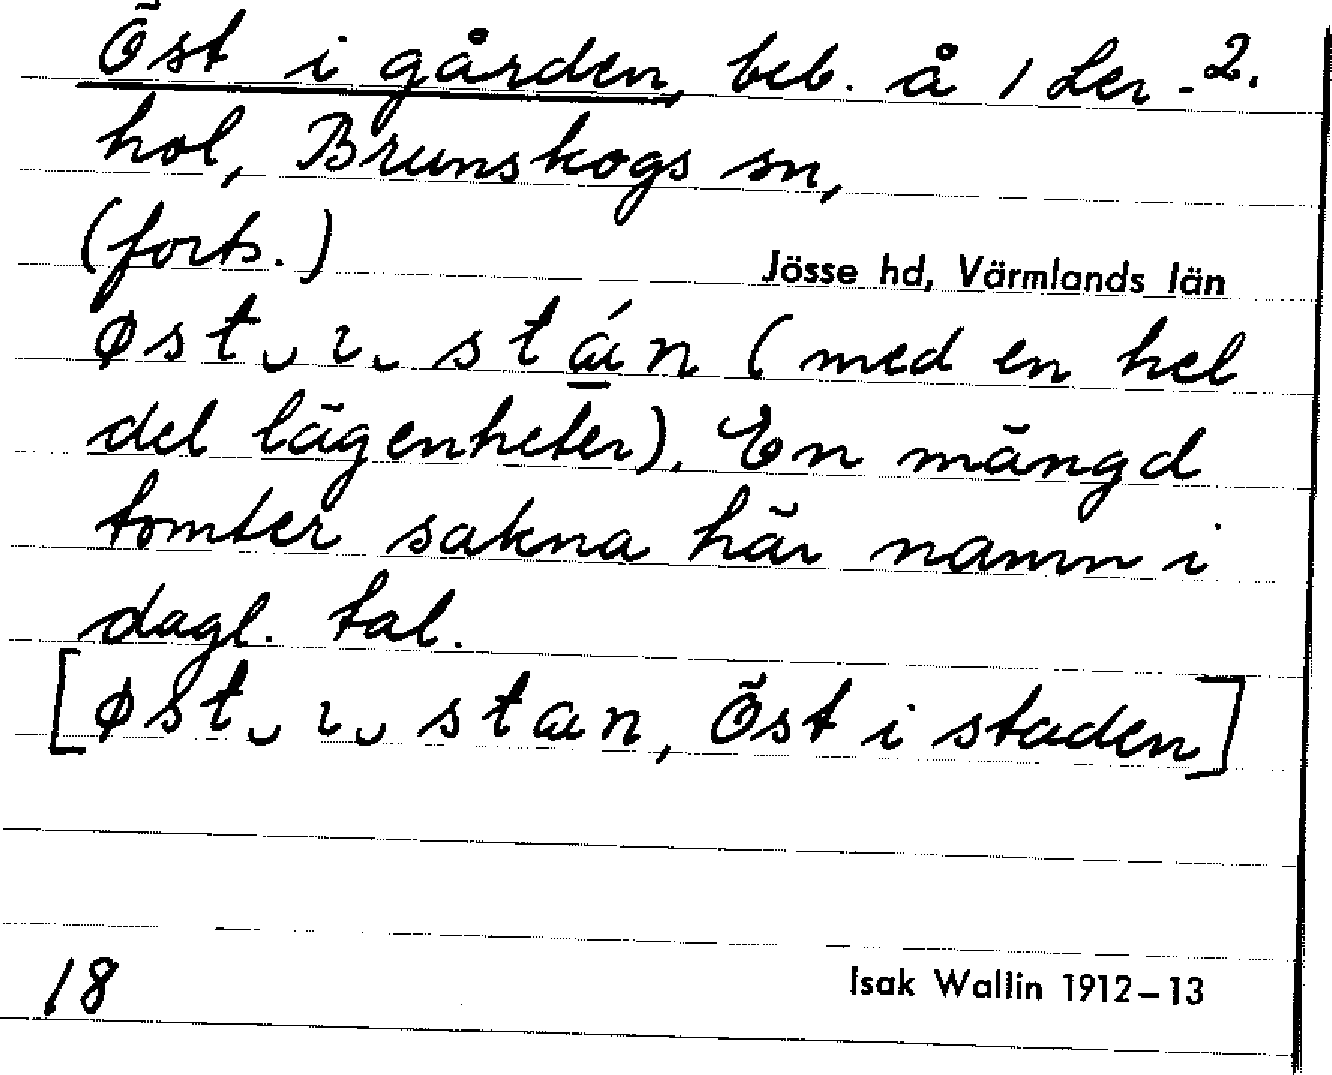 Öst i gården, beb. å 1 Ler- 2.
hol, Brunskogs sn,
(forts.)
Jösse hd, Värmlands län
øst‿ı‿stá̱n (med en hel
del lägenheter). En mängd
tomter sakna här namn i
dagl. tal.
[øst‿ı‿stan, Öst i staden]
18
Isak Wallin 1912–13